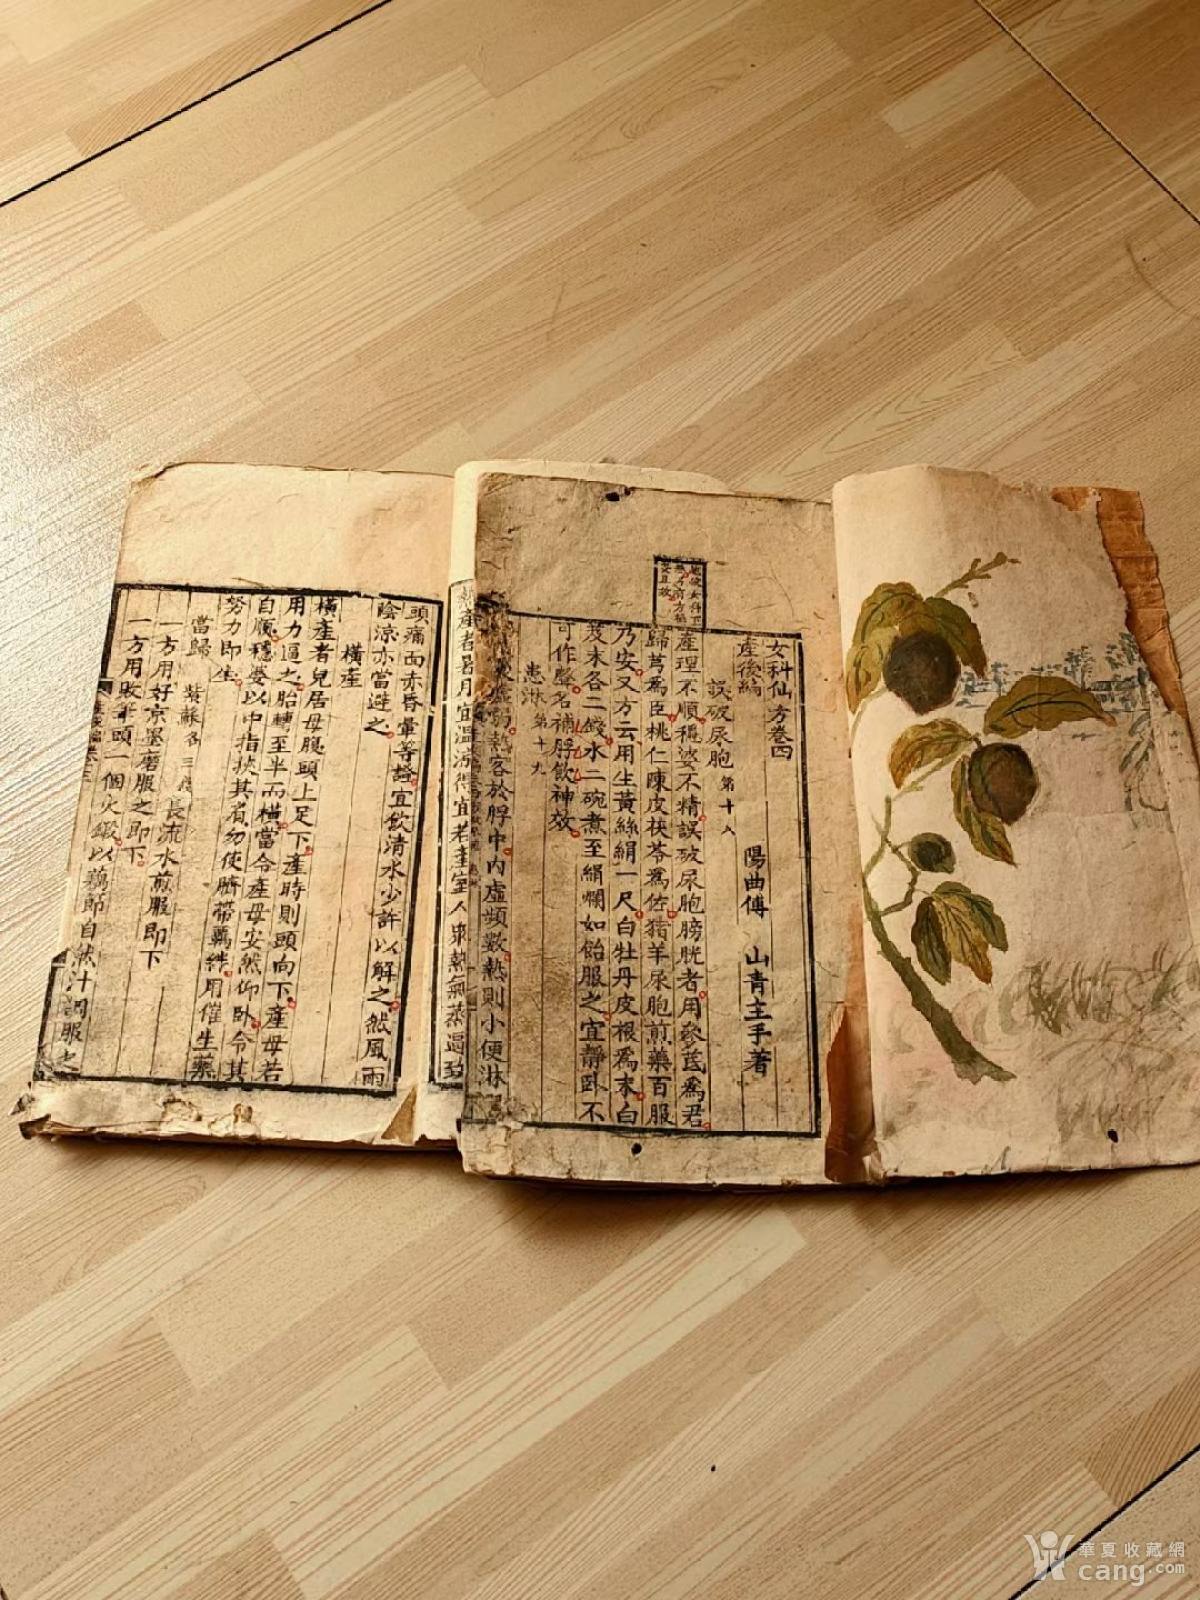 女科仙方卷四
陽曲傅 山青主手著
產後編
誤破尿胞 第十八
產理不順穩婆不精誤破尿胞膀胱者用參芪爲君
歸芎爲臣桃仁陳皮茯苓爲佐猪羊尿胞煎藥百服
乃安又方云用生黃絲絹一尺白牡丹皮根爲末白
芨末各二錢水二碗煮至絹爛如飴服之宜靜卧不
可作聲名補脬飲神效
患淋 第十九
熱客於脬中内虛頻數熱則小便淋
熱產者暑月宜溫涼得宜若產室人衆熱氣蒸逼致
頭痛面赤昏暈等證宜飲清水少許以解之然風雨
陰涼亦當避之
橫產
橫產者兒居母腹頭上足下產時則頭向下產母若
用力逼之胎轉至半而橫當令產母安然仰卧令其
自順穩婆以中指挾其肩勿使臍帶羈絆用催生藥
努力即生
當歸 紫蘇各三錢 長流水煎服即下
一方用好京墨磨服之即下
一方用敗筆頭一個火鍛以藕節自然汁調服之
華夏收藏網
cang.com